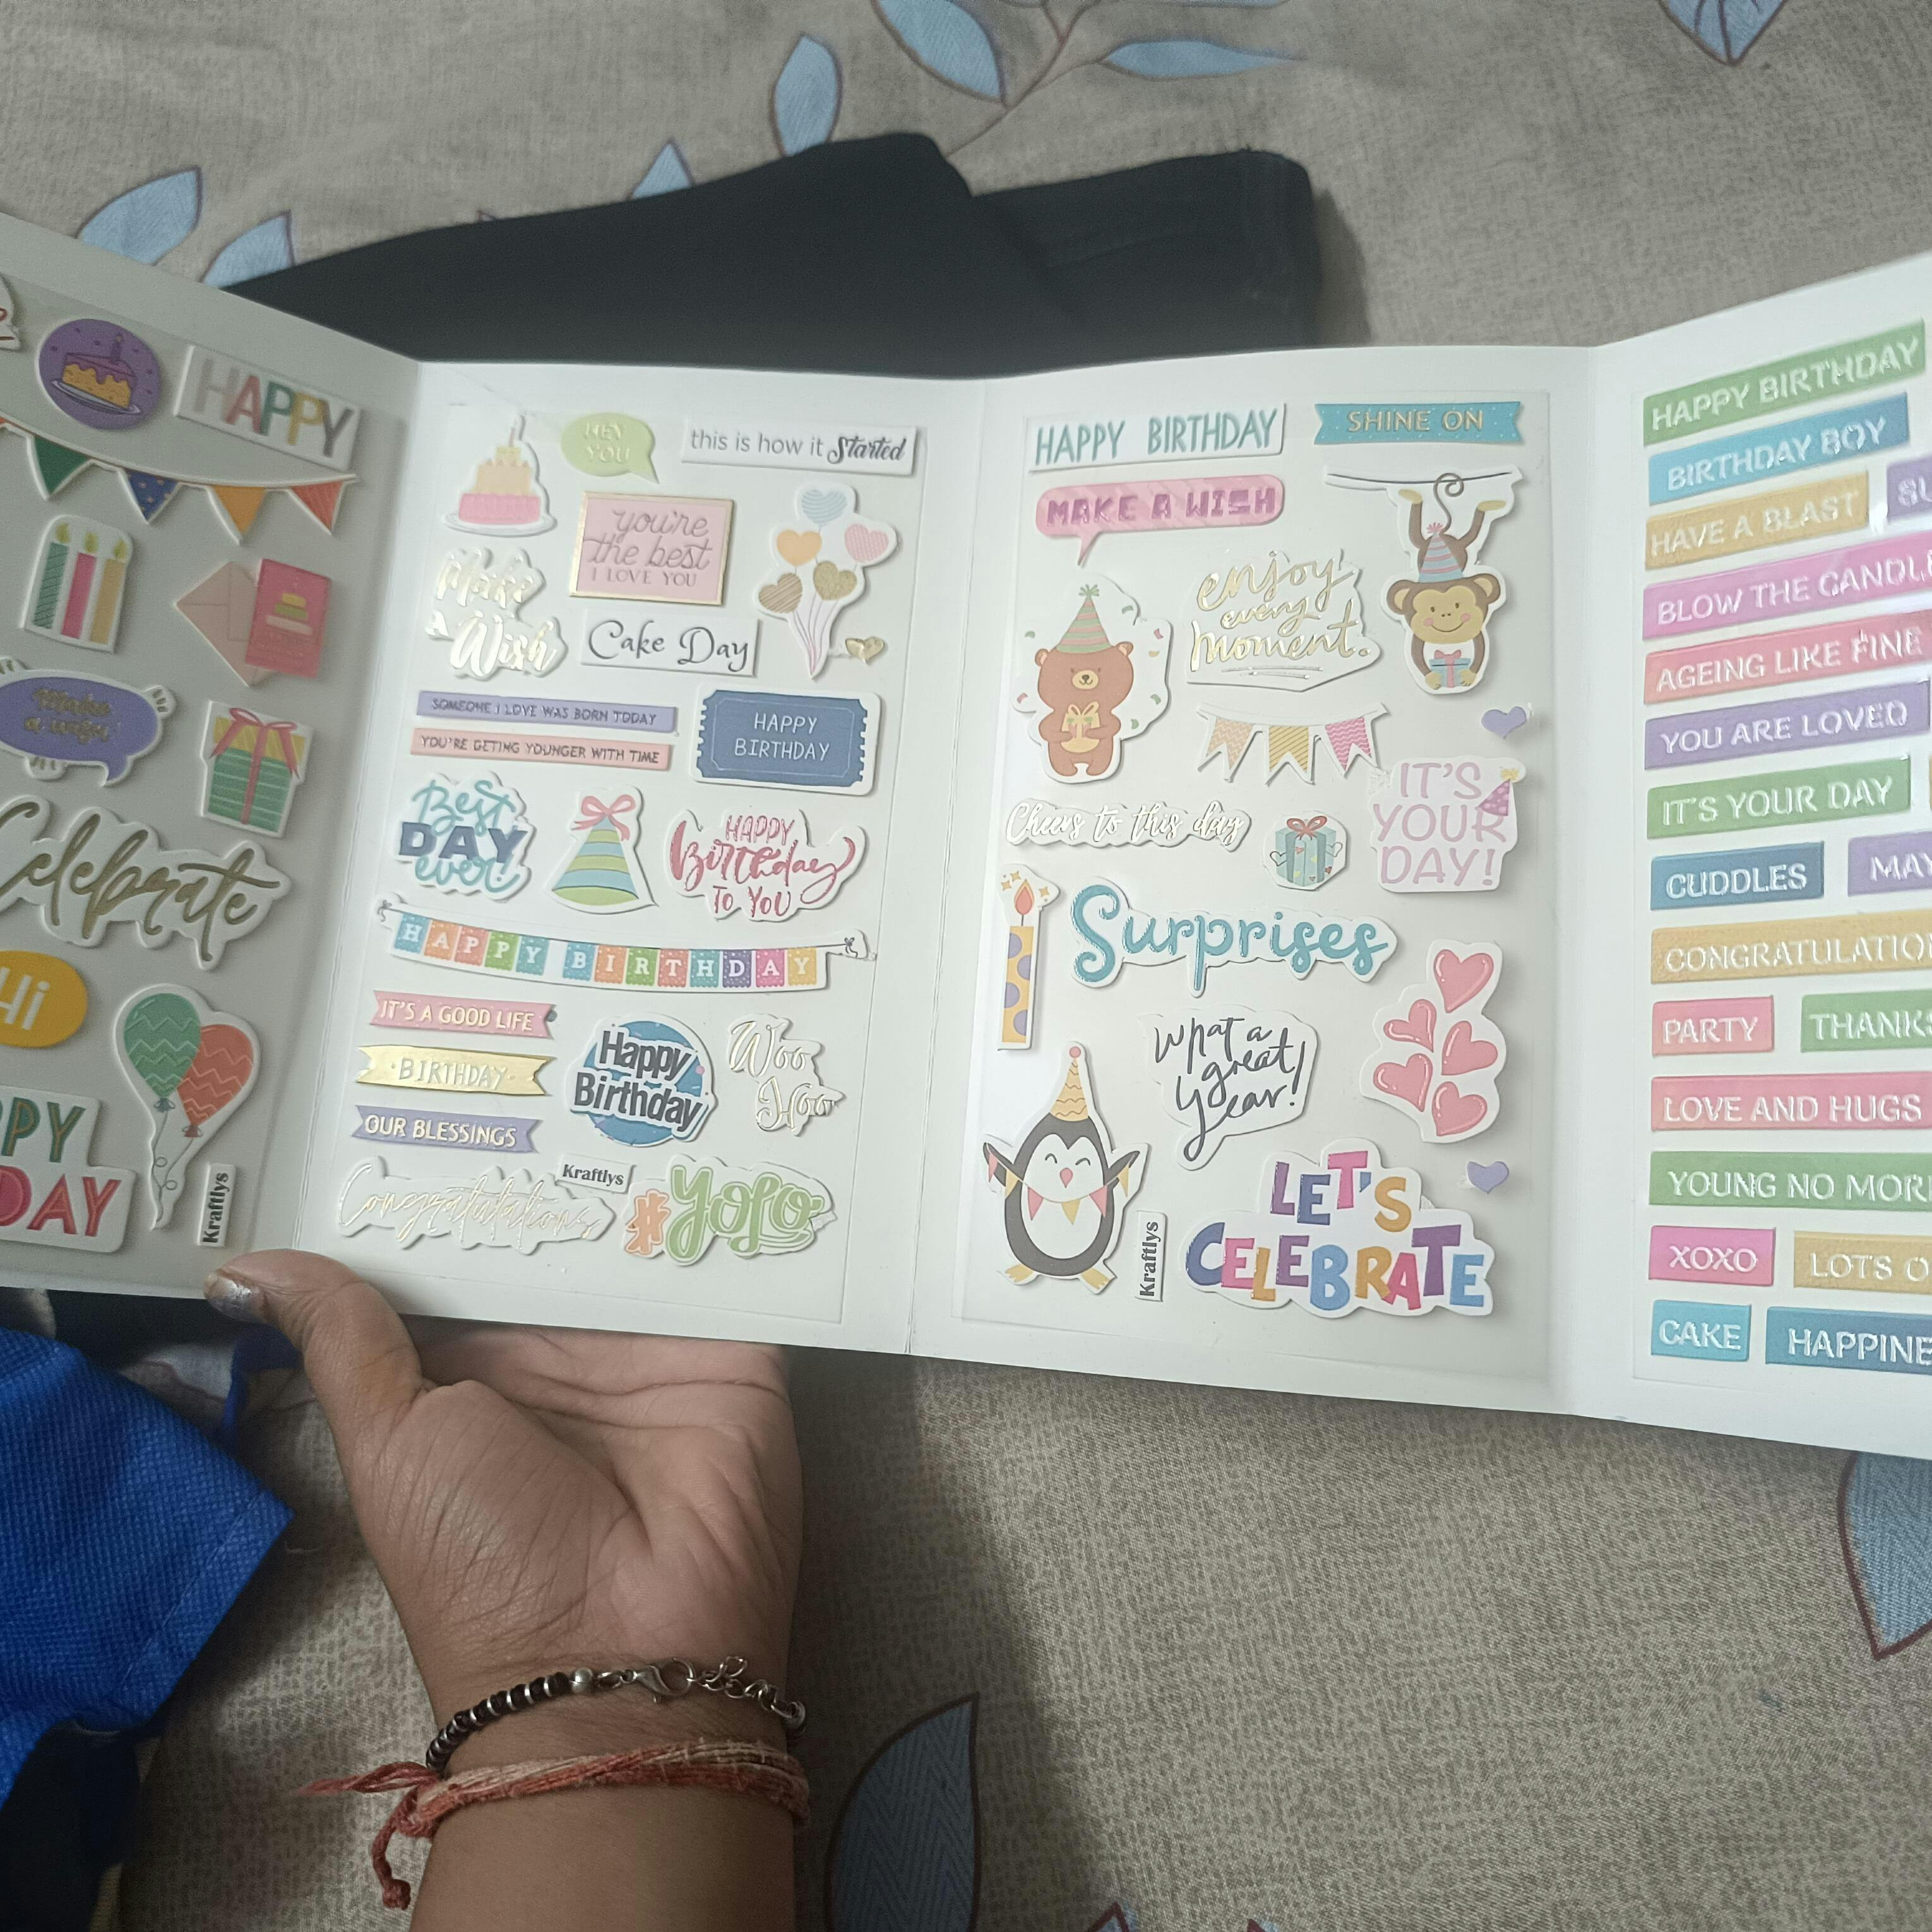 HAPPY
Make
a wish
Celebrate
Hi
PPY
DAY
Kraftlys
HEY
YOU
this is how it Started
you're
the best
I LOVE YOU
Make
a Wish
Cake Day
SOMEONE I LOVE WAS BORN TODAY
YOU'RE GETING YOUNGER WITH TIME
HAPPY
BIRTHDAY
Best
DAY
ever!
HAPPY
Birthday
TO YOU
HAPPY BIRTHDAY
IT'S A GOOD LIFE
BIRTHDAY
OUR BLESSINGS
Happy
Birthday
Woo
Hoo
Congratulations
Kraftlys
#YOLO
HAPPY BIRTHDAY
SHINE ON
MAKE A WISH
enjoy
every
moment.
Cheers to this day
IT'S
YOUR
DAY!
Surprises
What a
great
year!
Kraftlys
LET'S
CELEBRATE
HAPPY BIRTHDAY
BIRTHDAY BOY
HAVE A BLAST
BLOW THE CANDLE
AGEING LIKE FINE
YOU ARE LOVED
IT'S YOUR DAY
CUDDLES
MAY
CONGRATULATIO
PARTY
THANKS
LOVE AND HUGS
YOUNG NO MOR
XOXO
LOTS O
CAKE
HAPPINE